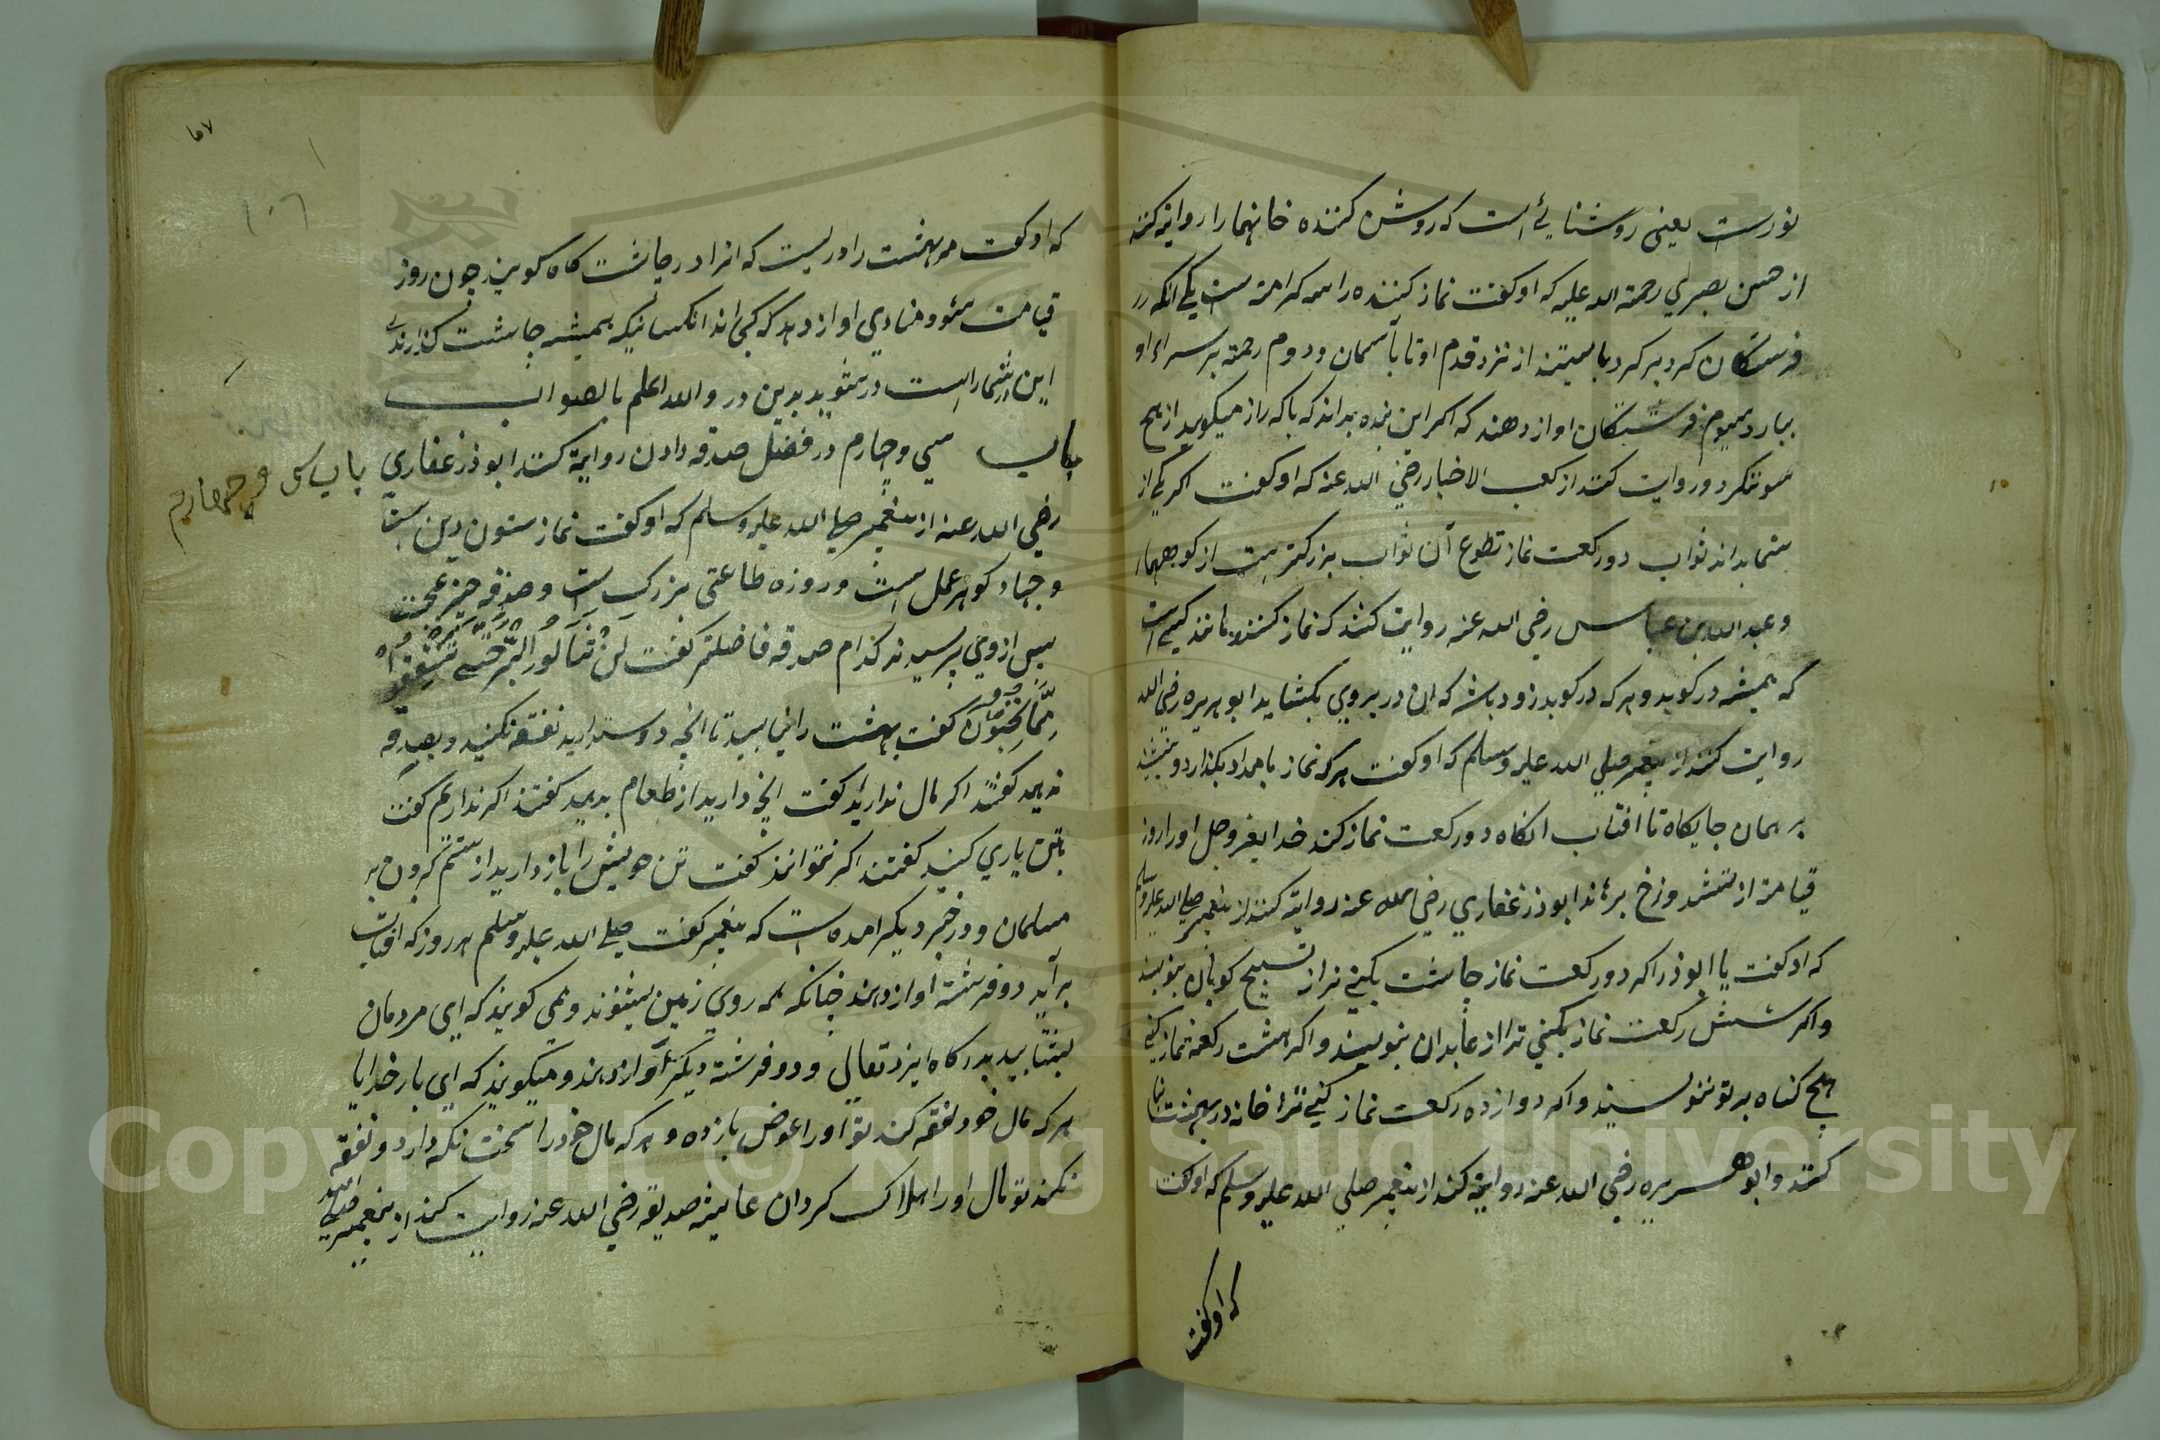 نورست یعنی روشنایٔ است که روشن کننده خانهما را روایة کنند
از حسن بصری رحمة الله علیه که او کفت نماز کننده را سه کرامة است یکی انکه در
فرستکان کرد بر کرد بایستند از نزد قدم او تا بآسمان و دوم رحمة بر سراء او
ببارد سیوم فرستکان اواز دهند که اکر این بنده بداند که باکه راز میکوید از هیچ
سو ننکرد و روایت کنند از کعب الاخبار رضی الله عنه که او کفت اکر یکی از
شما بداند ثواب دو رکعت نماز تطوع آن ثواب بزرکتر است از کوههاء
و عبد الله بن عباس رضی الله عنه روایت کنند که نماز کننده مانند کسی است
که همیشه در کوبد و هر که در کوبد زود باشد که ان در بر وی بکشاید ابو هریره رضی الله
روایت کنند از پیغمبر صلی الله علیه وسلم که او کفت هر که نماز بامداد بکذارد و بنشیند
بر همان جایکاه تا افتاب انکاه دو رکعت نماز کند خدایعز وجل او را روز
قیامة از تش دوزخ برهاند ابوذر غفاری رضی الله عنه روایة کنند از پیغمبر صلی الله علیه وسلم
که او کفت یا ابوذر اکه دو رکعت نماز چاشت بکنی تر از تسبیح کویان بنویسند
و اکر شش رکعت نماز بکنی ترا از عابدان بنویسند و اکر هشت رکعة نماز کنی
هیچ کناه بر تو ننویسند و اکه دوازده رکعت نماز کنی ترا خانه در بهشت بنا
کنند و ابو هریره رضی الله عنه روایة کند از پیغمبر صلی الله علیه وسلم که او کفت
که او کفت
که او کفت مر بهشت را دریست که انرا در چاشت کاه کویند چون روز
قیامت شود منادی اواز دهد که کجااند انکسانیکه همیشه چاشت کذارندی
این در شماراست در شوید بدین در والله اعلم بالصواب
باب سی و چارم در فضل صدقه دادن روایة کند ابوذر غفاری
باب سی و چهارم
رضی الله عنه از پیغمبر صلی الله علیه وسلم که او کفت نماز ستون دین است
و جهاد کوهر عمل است و روزه طاعتی بزرک است و صدقه چیز عجبت
پس از وی پرسیدند کدام صدقه فاضلتر کفت لَنْ تَنَالُوا الْبِرَّ حَتَّی تُنْفِقُوا
مِمَّا تُحِبُّونَ کفت بهشت را نیابید تا انچه دوست دارید نفقه نکنید و بصدقه
ندهید کفتند اکر مال ندارند کفت انچه دارید از طعام بدهید کفتند اکر نداریم کفت
بتن یاری کنید کفتند اکر نتوانند کفت تن خویش را باز دارید از ستم کردن بر
مسلمان و در خبر دیکر امده است که پیغمبر کفت صلی الله علیه وسلم هر روز که افتاب
بر آید دو فرشته اواز دهند چنانکه همه روی زمین بشنوند و می کویند که ای مردمان
بشتابید بدرکاه ایزد تعالی و دو فرشته دیکر آواز دهند و میکویند که ای بار خدایا
هر که مال خود نفقه کند تو او را عوض باز ده و هر که مال خود را سخت نکه دارد و نفقه
نکند تو مال او را هلاک کردان عایشه صدیقه رضی الله عنه روایت کند از پیغمبر صلی الله
Copyright © King Saud University